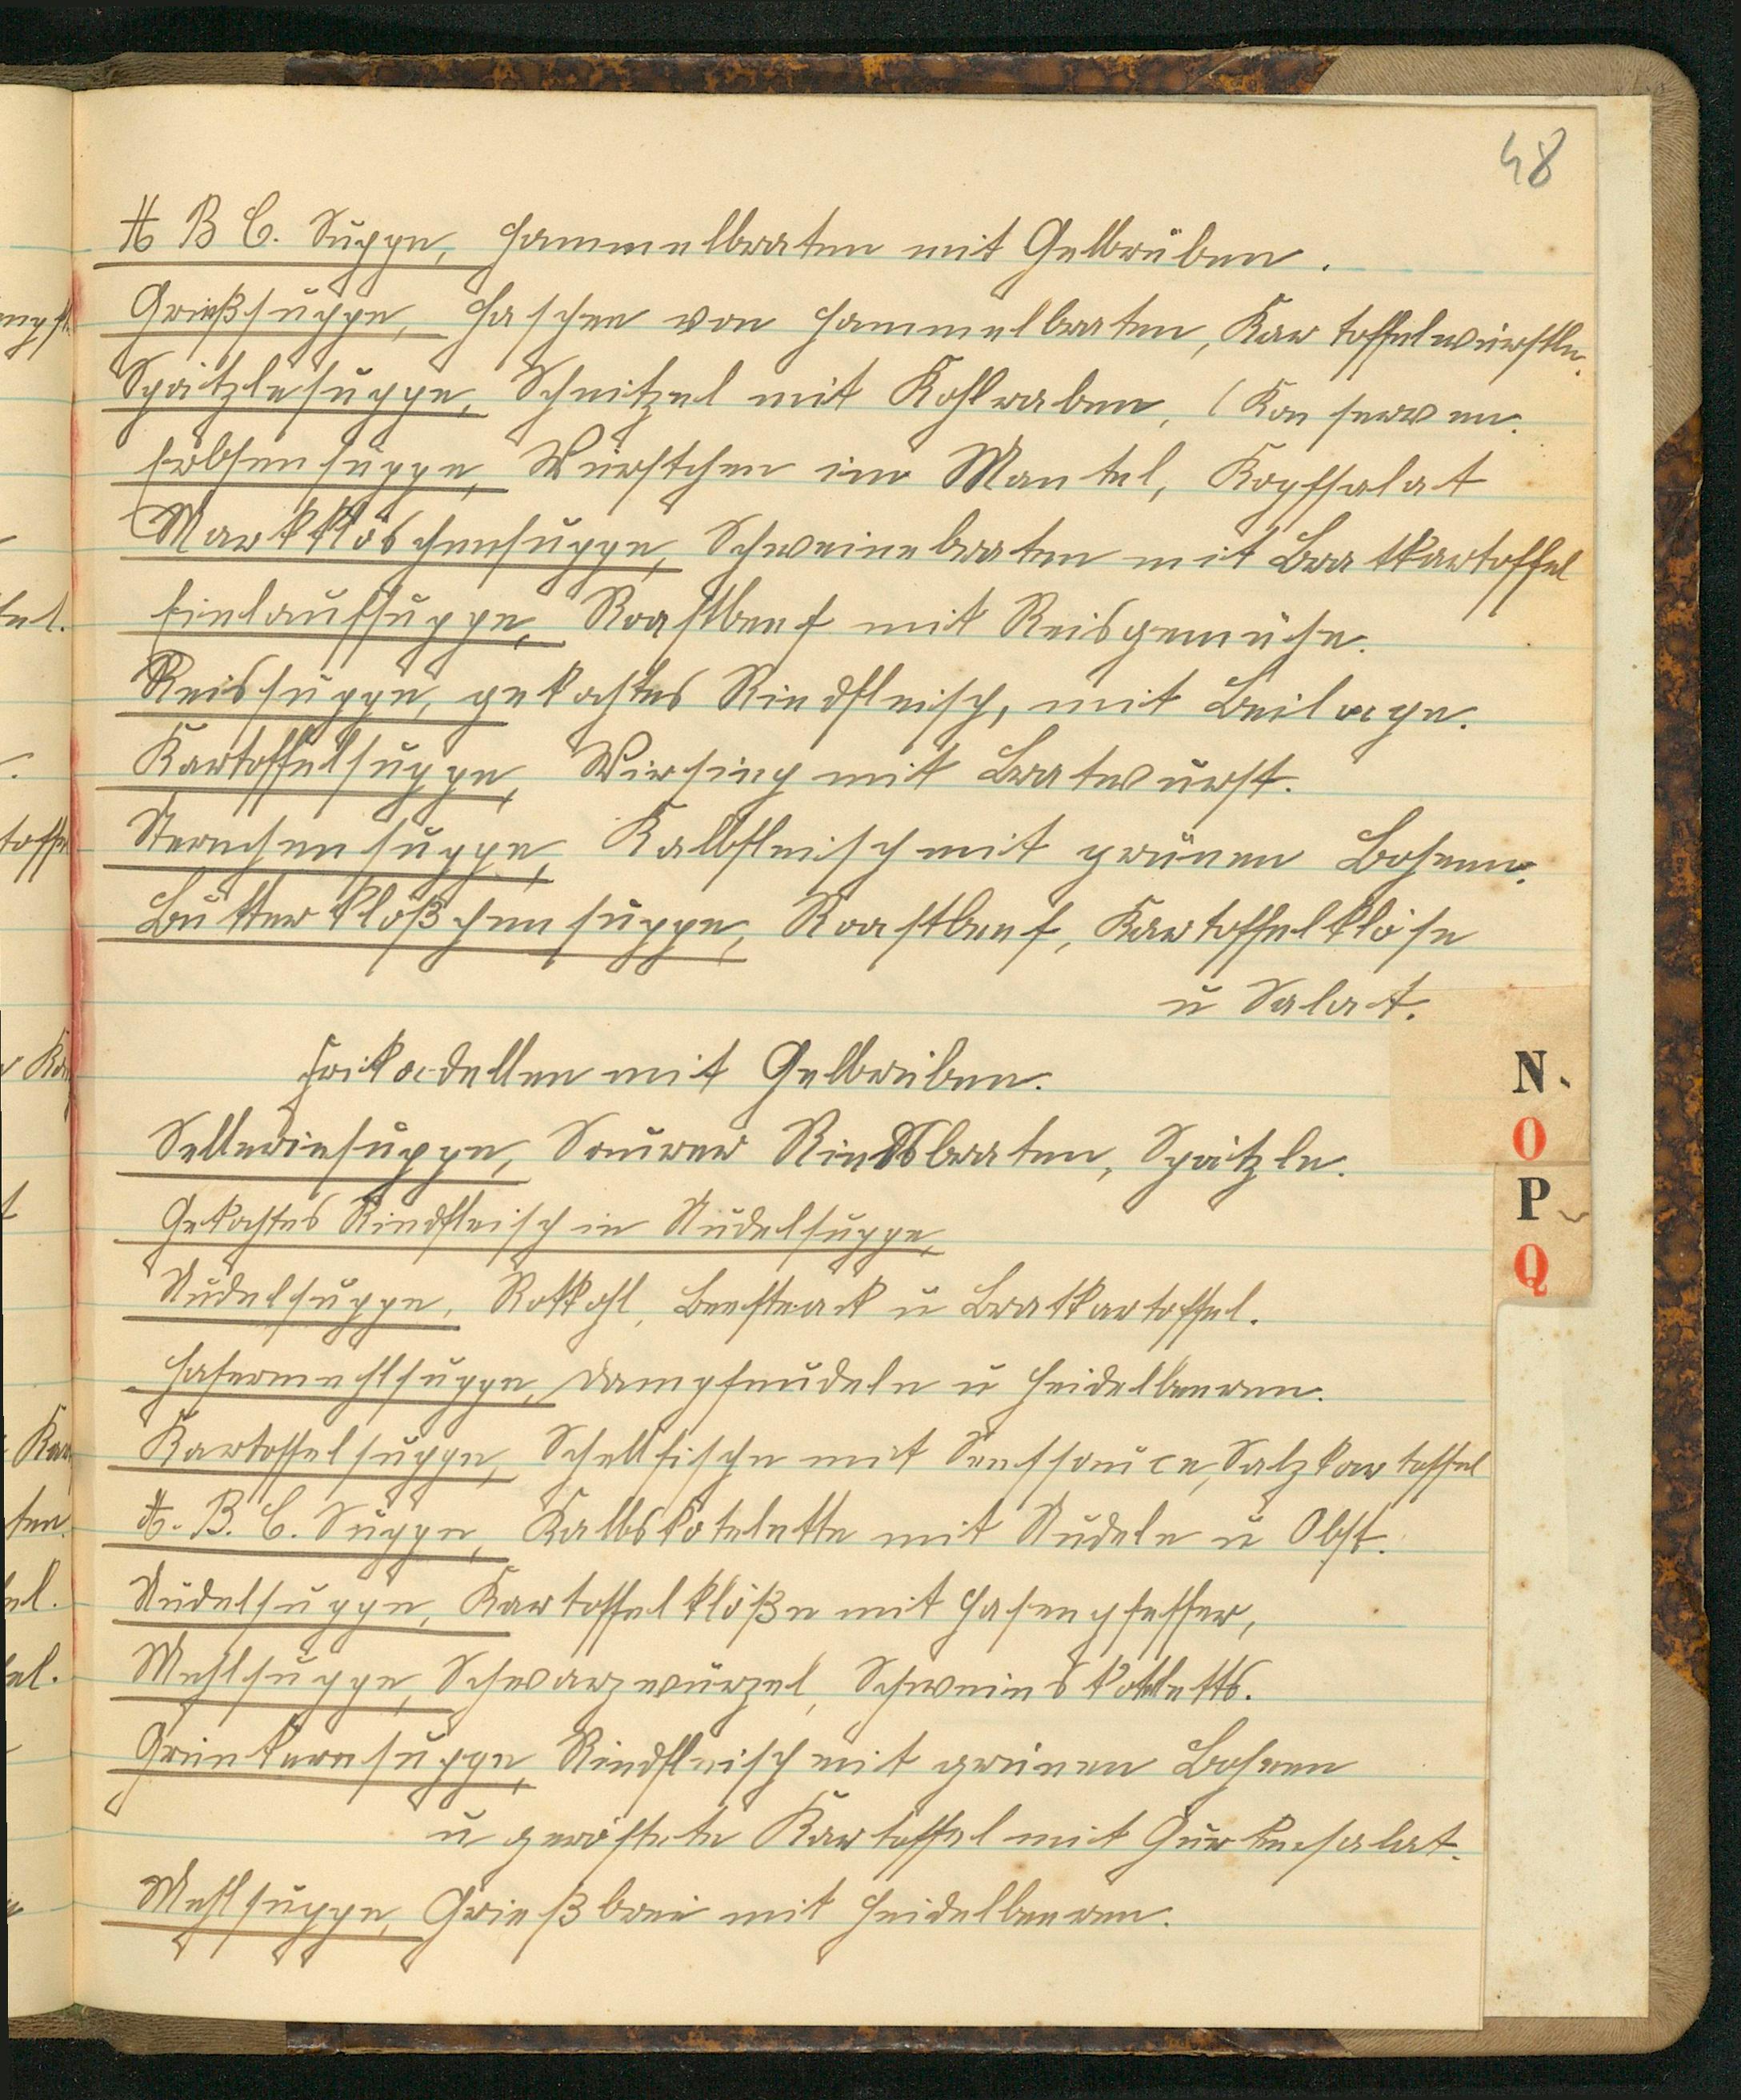 48
A B C. Suppe, Hammelbraten mit Gelbrüben.
Grießsuppe, Haschee von Hammelbraten, Kartoffelwürstle.
Spätzlesuppe, Schnitzel mit Kohlraben, (Konserven.
Erbsensuppe, Würstchen im Mantel, Kopfsalat
Markklöschensuppe, Schweinebraten mit Bratkartoffel
Einlaufsuppe, Roastbeef mit Reisgemüse.
Reissuppe, gekochtes Rindfleisch, mit Beilage.
Kartoffelsuppe, Wirsing mit Bratwurst.
Sternchensuppe, Kalbfleisch mit grünen Bohnen.
Butterklößchensuppe, Roastbeef, Kartoffelklöse
u Salat.
Frikadellen mit Gelbrüben.
Selleriesuppe, Saurer Rindsbraten, Spätzle.
Gekochtes Rindfleisch in Nudelsuppe,
Nudelsuppe, Rotkohl, Beefsteak u Bratkartoffel.
Hafermehlsuppe, Dampfnudeln u Heidelbeeren.
Kartoffelsuppe, Schellfische mit Senfsauce, Salzkartoffel
A. B. C. Suppe, Kalbskotelette mit Nudeln u Obst.
Nudelsuppe, Kartoffelklöße mit Hasenpfeffer,
Mehlsuppe, Schwarzwurzel, Schweinskotletts.
Grünkernsuppe, Rindfleisch mit grünen Bohnen
u geröstete Kartoffel mit Gurkensalat.
Mehlsuppe, Grießbrei mit Heidelbeeren.
N
O
P
Q